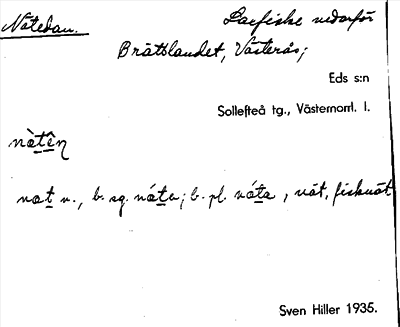 Nätedan. Laxfiske nedanför
Brättslandet, Västerås;
Eds s:n
Sollefteå tg., Västernorrl. l.
nat n., b. sg. náta; b. pl. náta, nät, fisknät
Sven Hiller 1935.